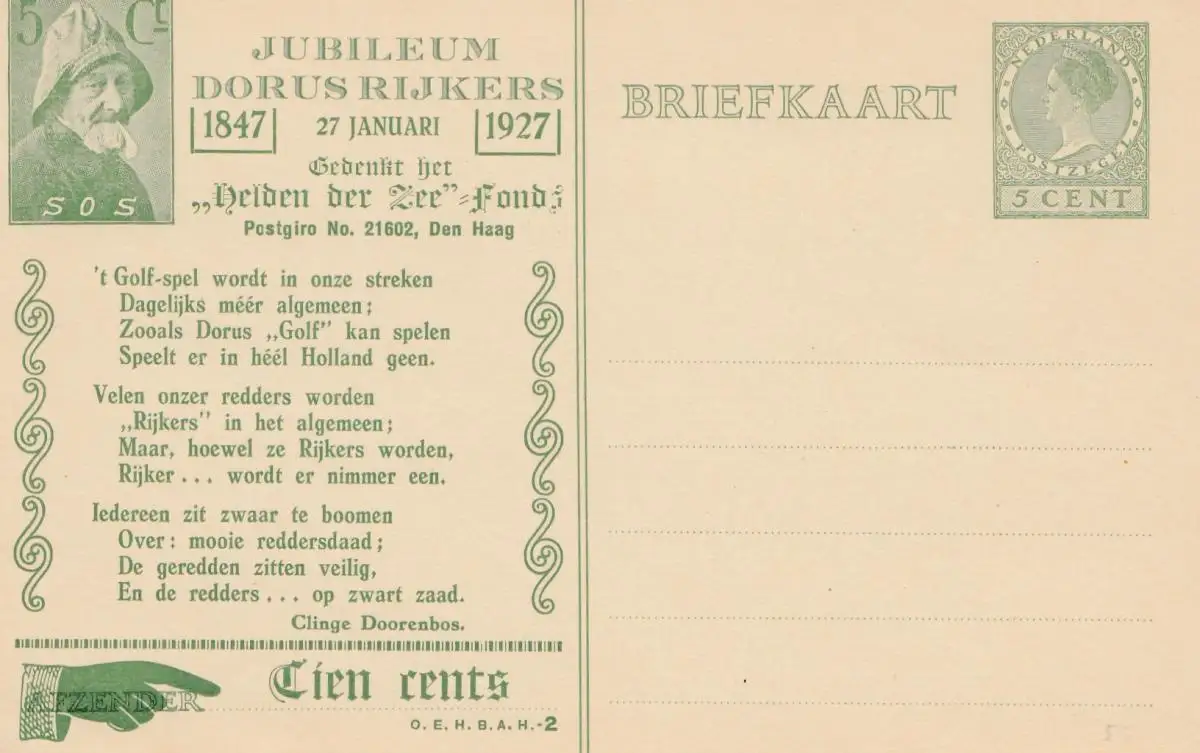 5 Ct
SOS
JUBILEUM
DORUS RIJKERS
1847 27 JANUARI 1927
Gedenkt het
„Helden der Zee”=Fonds
Postgiro No. 21602, Den Haag
't Golf-spel wordt in onze streken
Dagelijks méér algemeen;
Zooals Dorus „Golf” kan spelen
Speelt er in héél Holland geen.
Velen onzer redders worden
„Rijkers” in het algemeen;
Maar, hoewel ze Rijkers worden,
Rijker... wordt er nimmer een.
Iedereen zit zwaar te boomen
Over: mooie reddersdaad;
De geredden zitten veilig,
En de redders... op zwart zaad.
Clinge Doorenbos.
AFZENDER
Tien cents
O. E. H. B. A. H.-2
BRIEFKAART
NEDERLAND
POSTZEGEL
5 CENT